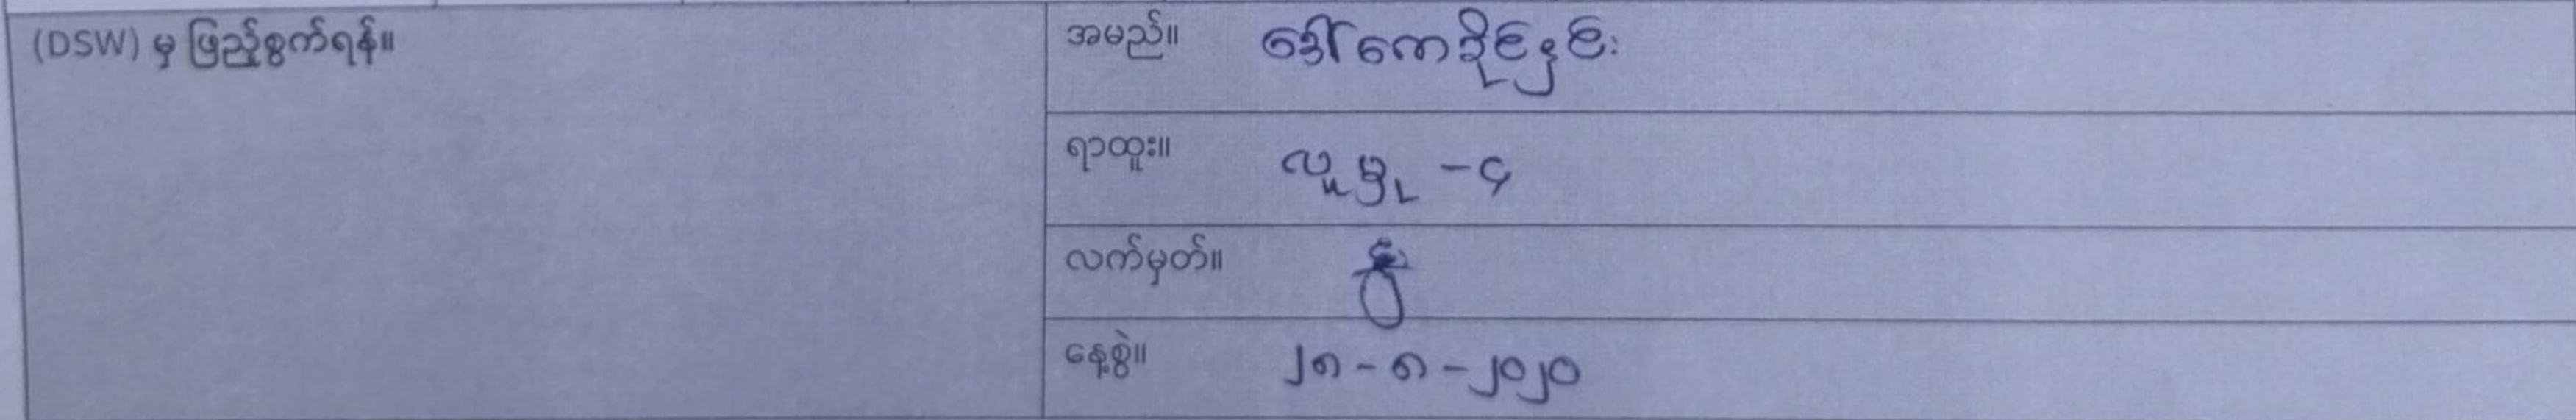 (DSW) မှ ဖြည့်စွက်ရန်။
အမည်။ ဒေါ်ကေခိုင်နှင်း
ရာထူး။ လူမှု -၄
လက်မှတ်။
နေ့စွဲ။ ၂၈ - ၈ - ၂၀၂၀